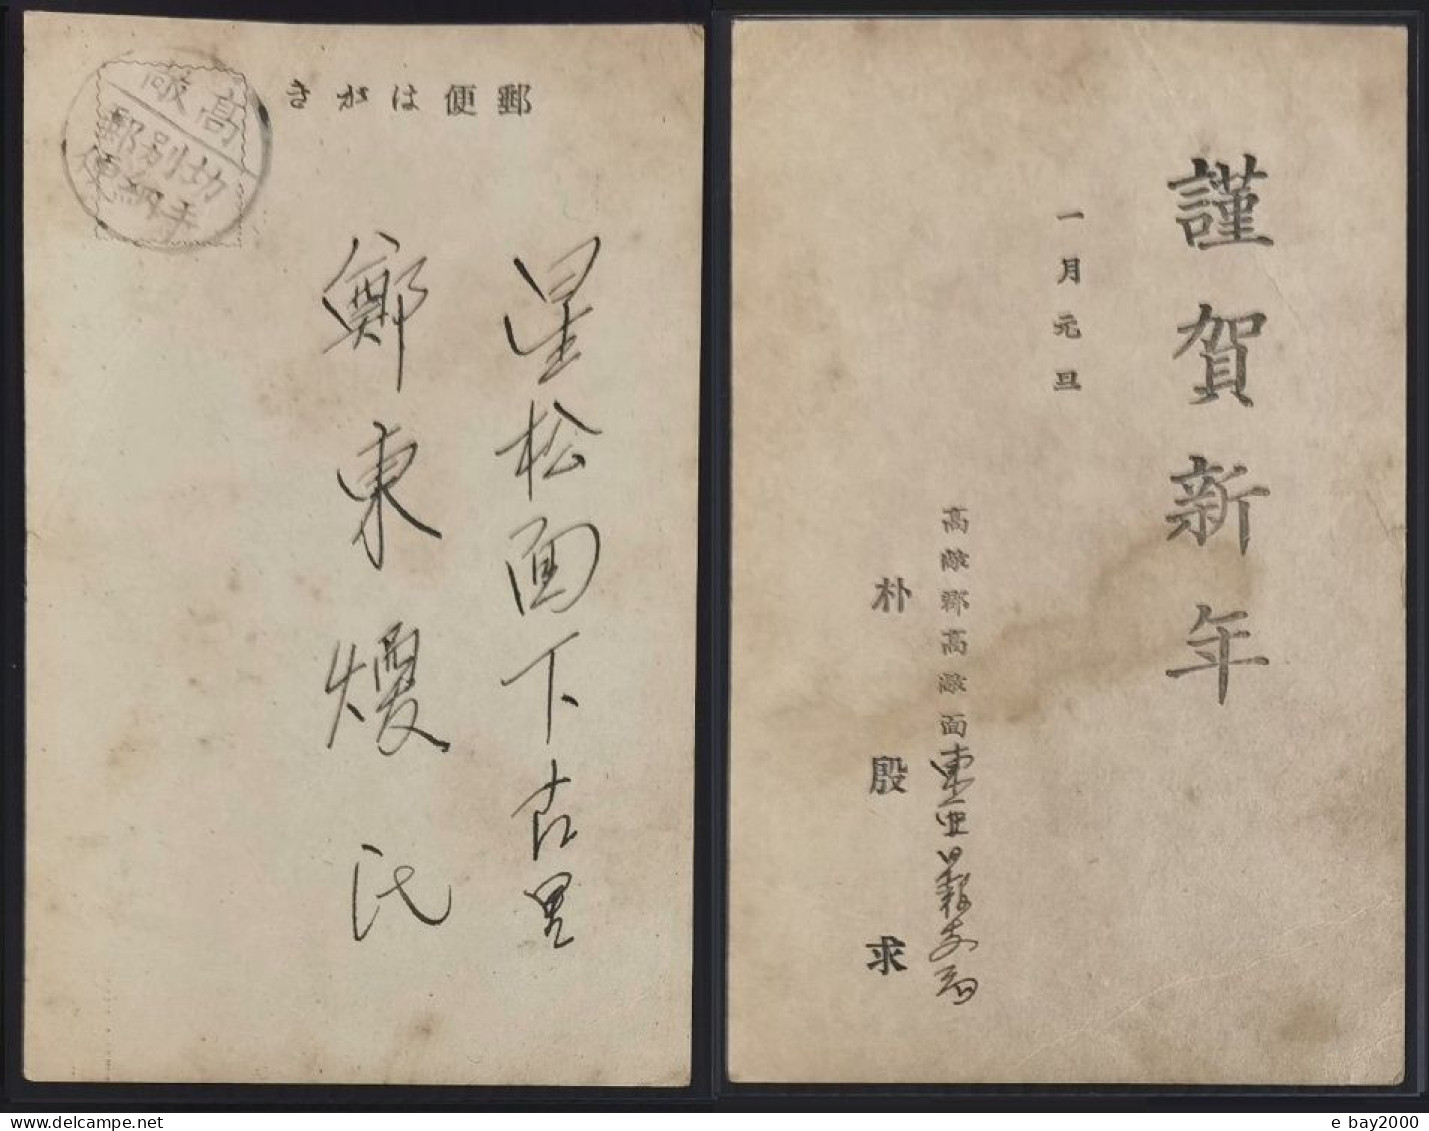 郵便はがき
高敞
切別郵
手納便
星松面下古里
鄭東煖氏
謹賀新年
一月元旦
高敞郡高敞面東亜日報支局
朴殷求
e bay2000